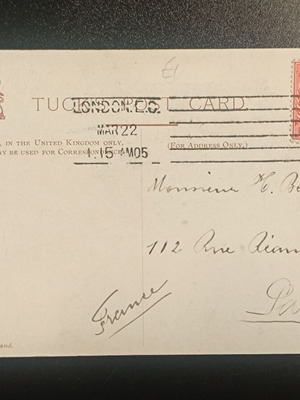 TUCK POST CARD.
LONDON.E.C.
MAR 22
1.15 AM 05
, IN THE UNITED KINGDOM ONLY,
AY BE USED FOR CORRESPONDENCE
(FOR ADDRESS ONLY.)
Monsieur
112 Rue
France
and.